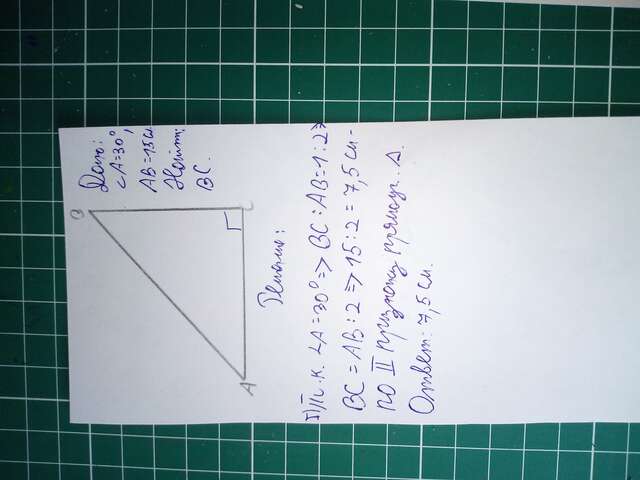 B
A
C
Дано:
∠A=30°,
AB=15см
Найти:
BC.
Решение:
1) Т.к. ∠A=30° => BC:AB=1:2 =>
BC=AB:2 => 15:2=7,5см -
по II признаку прямоуг. Δ.
Ответ: 7,5см.